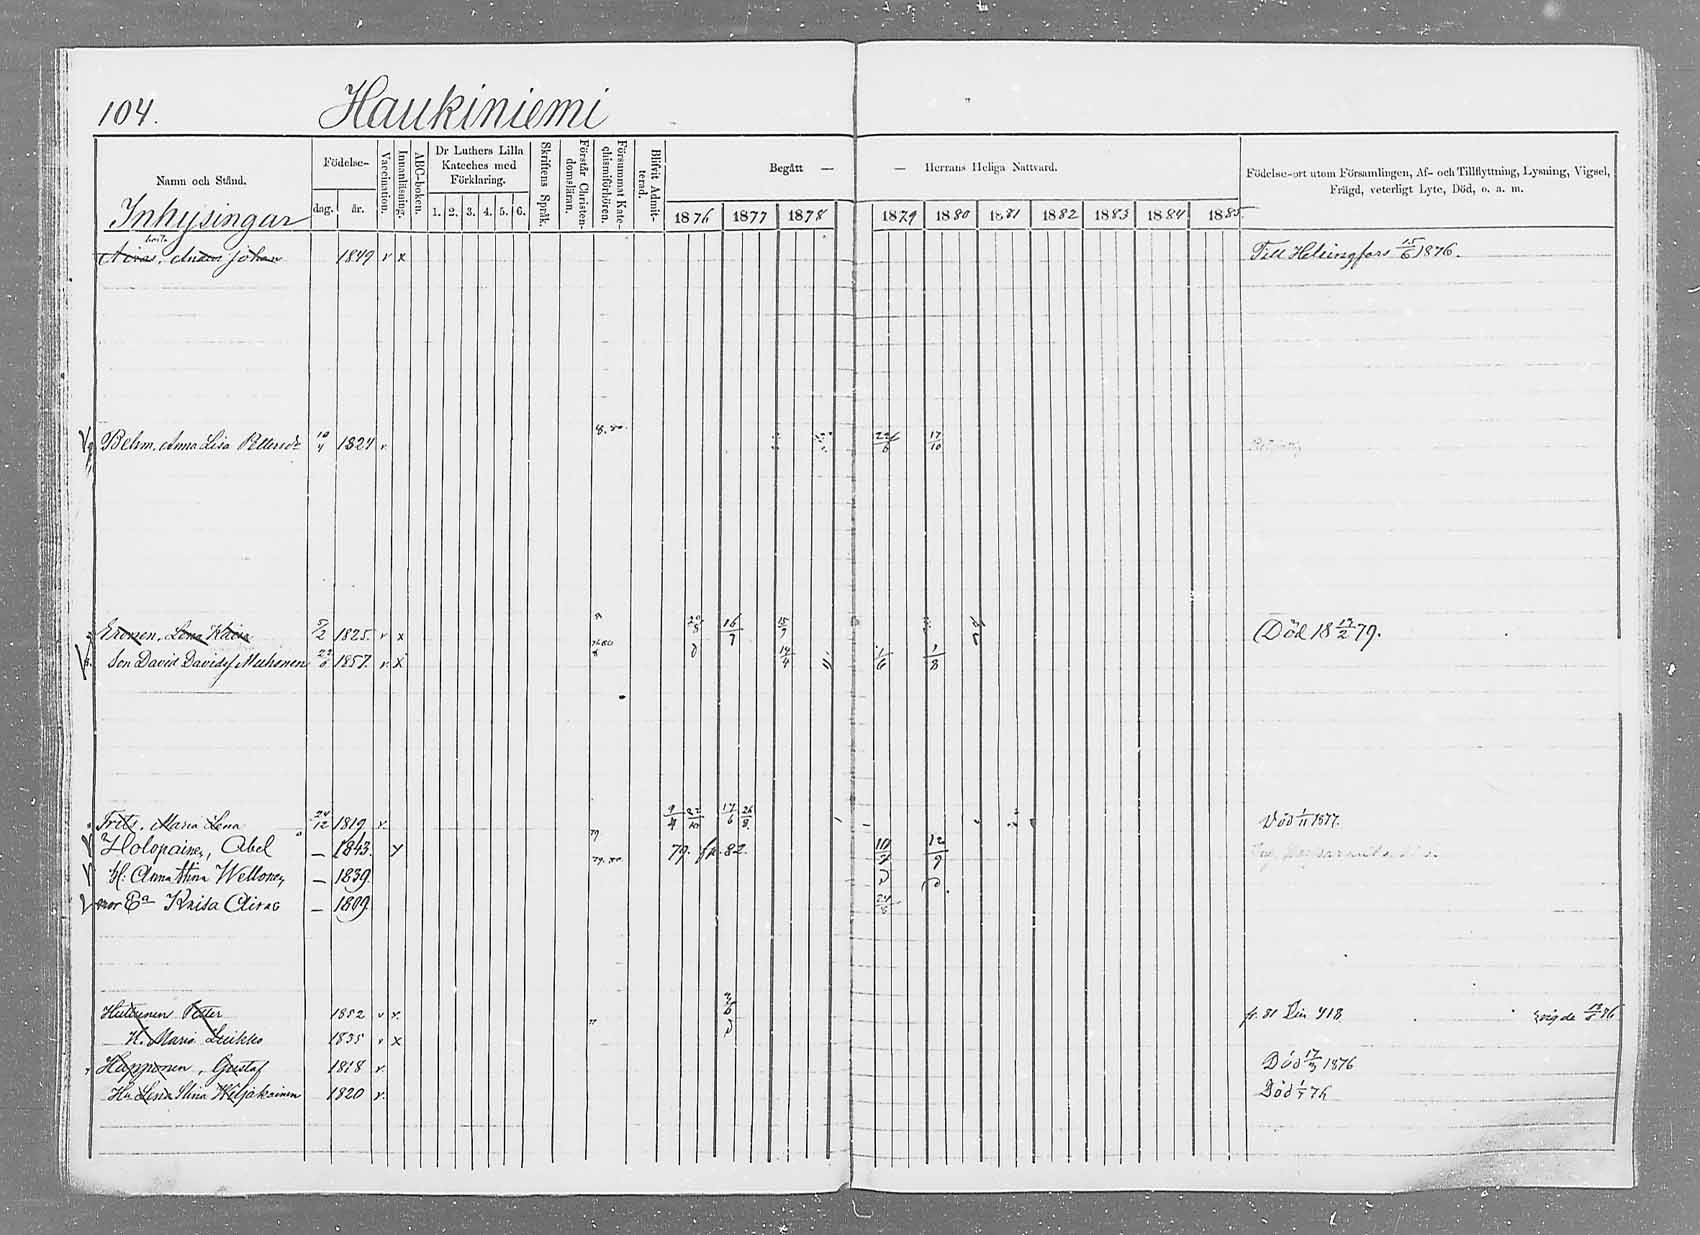 104. Haukiniemi
Namn och Stånd. Födelse- dag. år. Vaccination. Innanläsning. ABC-boken. Dr Luthers Lilla Kateches med Förklaring. 1. 2. 3. 4. 5. 6. Skriftens Språk. Förstår Christendomsläran. Försummat Katechismiförhören. Blifvit Admitterad. Begått — — Herrans Heliga Nattvard. 1876 1877 1878 1879 1880 1881 1882 1883 1884 1885 Födelse-ort utom Församlingen, Af- och Tillflyttning, Lysning, Vigsel, Frägd, veterligt Lyte, Död, o. a. m.
Inhysingar
Johan 1849 v x Till Helsingfors 15/6 1876.
Behm, Anna Lisa 10/4 1824 v 17/10
Eronen, Lena 5/2 1825 v x 16/7 Död 18 17/2 79.
Son David Davidsf 1857 v x 14/4 1/6 1/8
Frits, Maria Lena 24/12 1819 v 9/4 17/6 26/8 Död 1/11 1877.
Holopainen, Abel — 1843. x 79. fr. 82. 10/9 12/9
H. Anna Stina Wellonen — 1839
mor Ea Kaisa Airas — 1809
Huttunen Petter 1852 v v. fr. 81 Lin 418 vigde
H. Maria Leikko 1835 v x
Happonen, Gustaf 1818 v. Död 17/3 1876
Hu Lena Stina 1820 v. Död 1/7 76